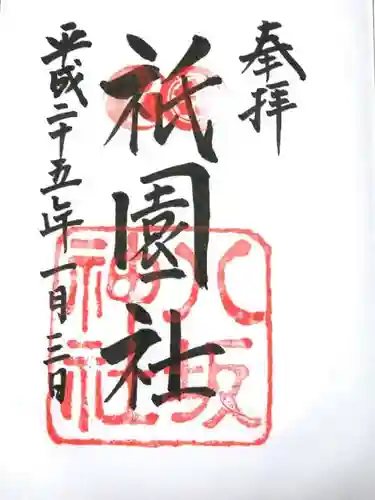 奉拝
祇園社
八坂神社
平成二十五年一月三日